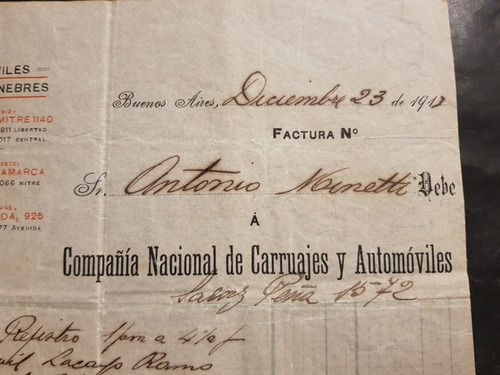 VILES
NEBRES
MITRE 1140
811 LIBERTAD
017 CENTRAL
AMARCA
066 MITRE
DA, 925
77 AVENIDA
Buenos Aires, Diciembre 23 de 1917
FACTURA Nº
Sr. Antonio Minetti Debe
Á
Compañía Nacional de Carruajes y Automóviles
Saenz Peña 1572
Registro 1pm a 4
Lacayo Ramo